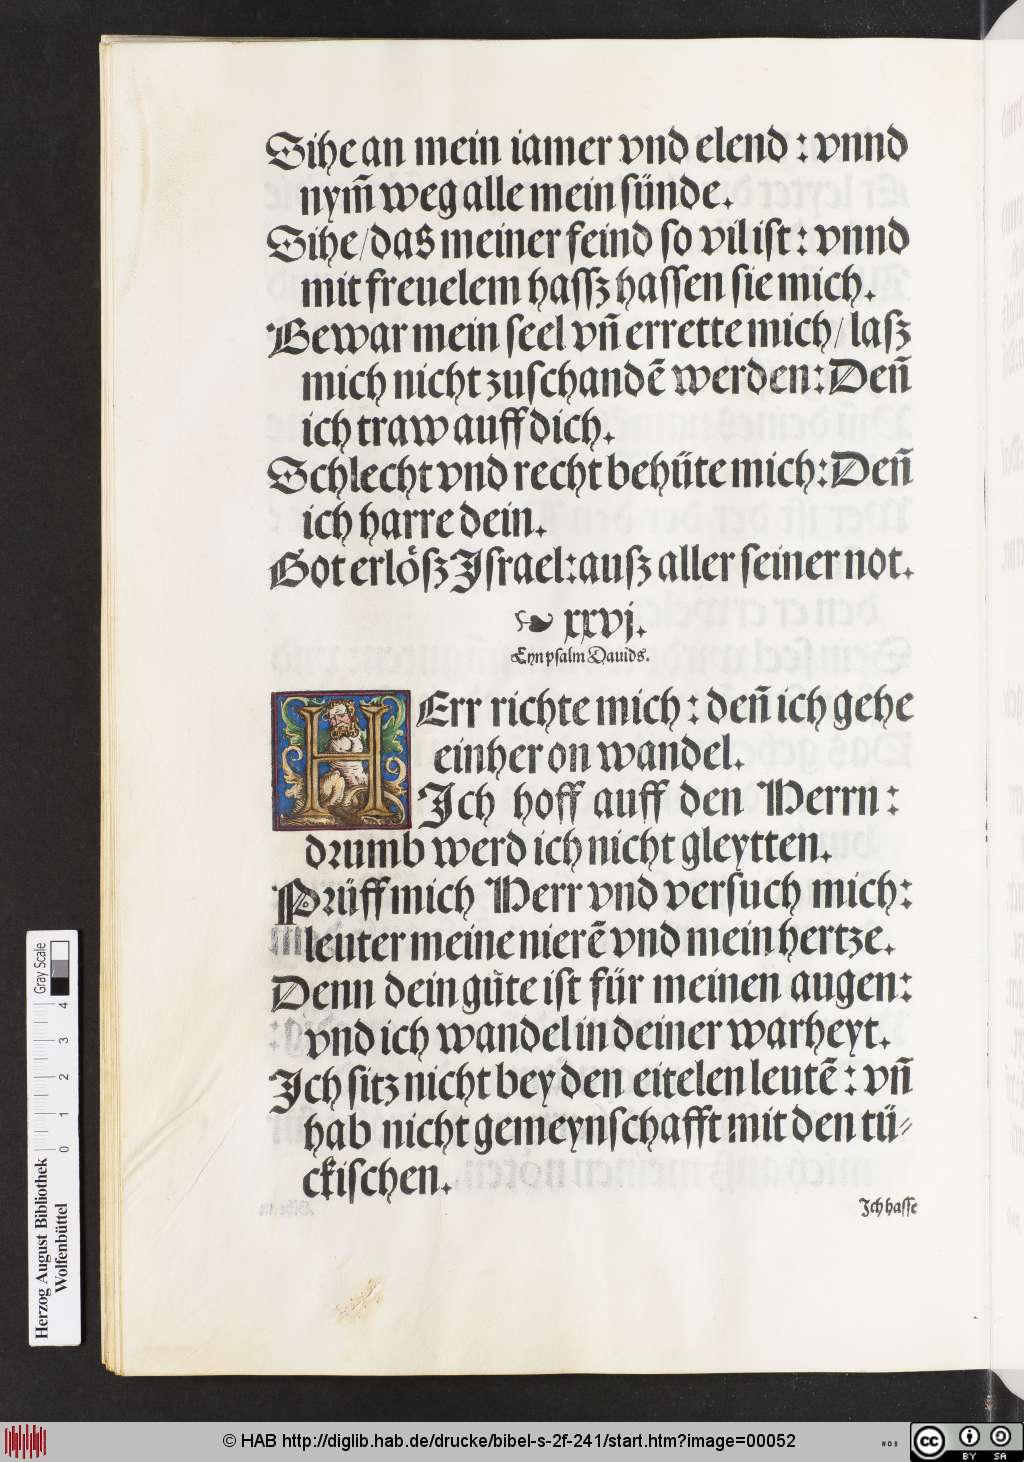 Sihe an mein iamer vnd elend : vnnd
nym̃ weg alle mein sünde.
Sihe/das meiner feind so vil ist : vnnd
mit freuelem hassz hassen sie mich.
Bewar mein seel vñ errette mich/ lasz
mich nicht zuschandẽ werden: Deñ
ich traw auff dich.
Schlecht vnd recht behüte mich: Deñ
ich harre dein.
Got erlösz Israel: ausz aller seiner not.
☙ xxvj.
Eyn psalm Dauids.
HErr richte mich : deñ ich gehe
einher on wandel.
Ich hoff auff den Herrn :
drumb werd ich nicht gleytten.
Prüff mich Herr vnd versuch mich:
leuter meine nierẽ vnd mein hertze.
Denn dein gůte ist für meinen augen:
vnd ich wandel in deiner warheyt.
Ich sitz nicht bey den eitelen leutẽ : vñ
hab nicht gemeynschafft mit den tü⸗
ckischen.
Ich hasse
Herzog August Bibliothek
Wolfenbüttel
0 1 2 3 4
Gray Scale
© HAB http://diglib.hab.de/drucke/bibel-s-2f-241/start.htm?image=00052
WDB
cc BY SA